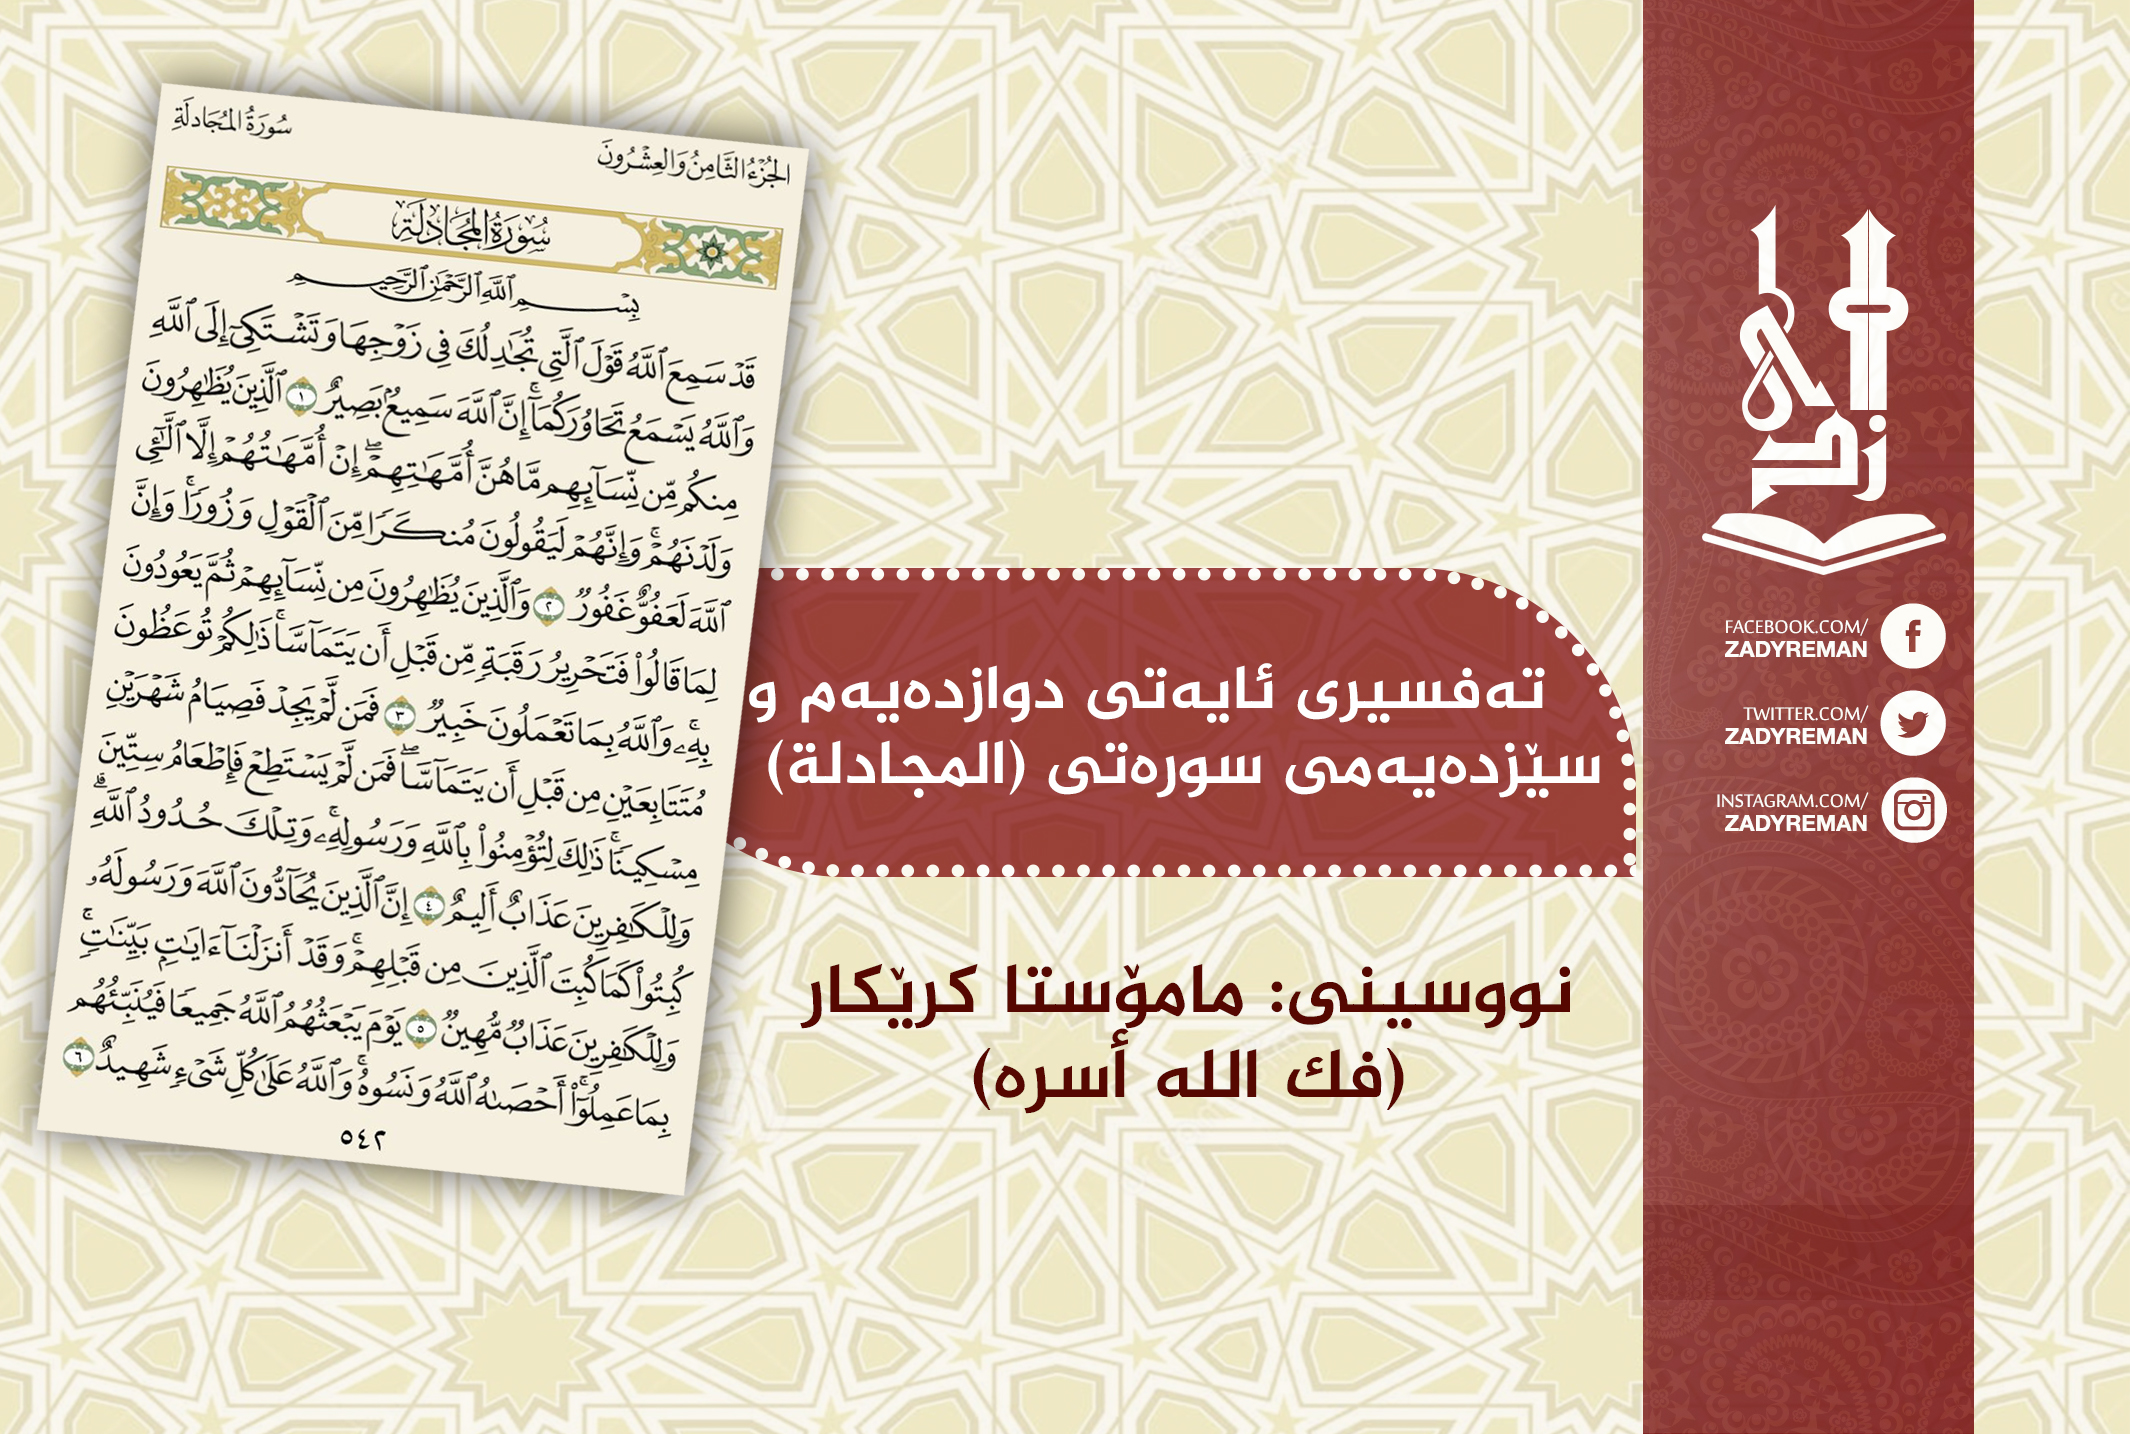 سُورَةُ المُجَادلَةِ
الجُزْءُ الثَّامِنُ وَالعِشْرُونَ
سُورَةُ المُجَادلَةِ
بِسْمِ ٱللَّهِ ٱلرَّحْمَٰنِ ٱلرَّحِيمِ
قَدْ سَمِعَ ٱللَّهُ قَوْلَ ٱلَّتِي تُجَٰدِلُكَ فِي زَوْجِهَا وَتَشْتَكِيٓ إِلَى ٱللَّهِ
وَٱللَّهُ يَسْمَعُ تَحَاوُرَكُمَآۚ إِنَّ ٱللَّهَ سَمِيعُۢ بَصِيرٌ ١ ٱلَّذِينَ يُظَٰهِرُونَ
مِنكُم مِّن نِّسَآئِهِم مَّا هُنَّ أُمَّهَٰتِهِمْۖ إِنْ أُمَّهَٰتُهُمْ إِلَّا ٱلَّٰٓـِٔي
وَلَدْنَهُمْۚ وَإِنَّهُمْ لَيَقُولُونَ مُنكَرًا مِّنَ ٱلْقَوْلِ وَزُورًاۚ وَإِنَّ
ٱللَّهَ لَعَفُوٌّ غَفُورٌ ٢ وَٱلَّذِينَ يُظَٰهِرُونَ مِن نِّسَآئِهِمْ ثُمَّ يَعُودُونَ
لِمَا قَالُوا۟ فَتَحْرِيرُ رَقَبَةٍ مِّن قَبْلِ أَن يَتَمَآسَّاۚ ذَٰلِكُمْ تُوعَظُونَ
بِهِۦۚ وَٱللَّهُ بِمَا تَعْمَلُونَ خَبِيرٌ ٣ فَمَن لَّمْ يَجِدْ فَصِيَامُ شَهْرَيْنِ
مُتَتَابِعَيْنِ مِن قَبْلِ أَن يَتَمَآسَّاۖ فَمَن لَّمْ يَسْتَطِعْ فَإِطْعَامُ سِتِّينَ
مِسْكِينًاۚ ذَٰلِكَ لِتُؤْمِنُوا۟ بِٱللَّهِ وَرَسُولِهِۦۚ وَتِلْكَ حُدُودُ ٱللَّهِۗ
وَلِلْكَٰفِرِينَ عَذَابٌ أَلِيمٌ ٤ إِنَّ ٱلَّذِينَ يُحَآدُّونَ ٱللَّهَ وَرَسُولَهُۥ
كُبِتُوا۟ كَمَا كُبِتَ ٱلَّذِينَ مِن قَبْلِهِمْۚ وَقَدْ أَنزَلْنَآ ءَايَٰتٍۭ بَيِّنَٰتٍۚ
وَلِلْكَٰفِرِينَ عَذَابٌ مُّهِينٌ ٥ يَوْمَ يَبْعَثُهُمُ ٱللَّهُ جَمِيعًا فَيُنَبِّئُهُم
بِمَا عَمِلُوٓا۟ۚ أَحْصَىٰهُ ٱللَّهُ وَنَسُوهُۚ وَٱللَّهُ عَلَىٰ كُلِّ شَىْءٍ شَهِيدٌ ٦
٥٤٢
تەفسیری ئایەتی دوازدەیەم و
سێزدەیەمی سورەتی (المجادلة)
نووسینی: مامۆستا کرێکار
(فك الله أسره)
FACEBOOK.COM/
ZADYREMAN
TWITTER.COM/
ZADYREMAN
INSTAGRAM.COM/
ZADYREMAN